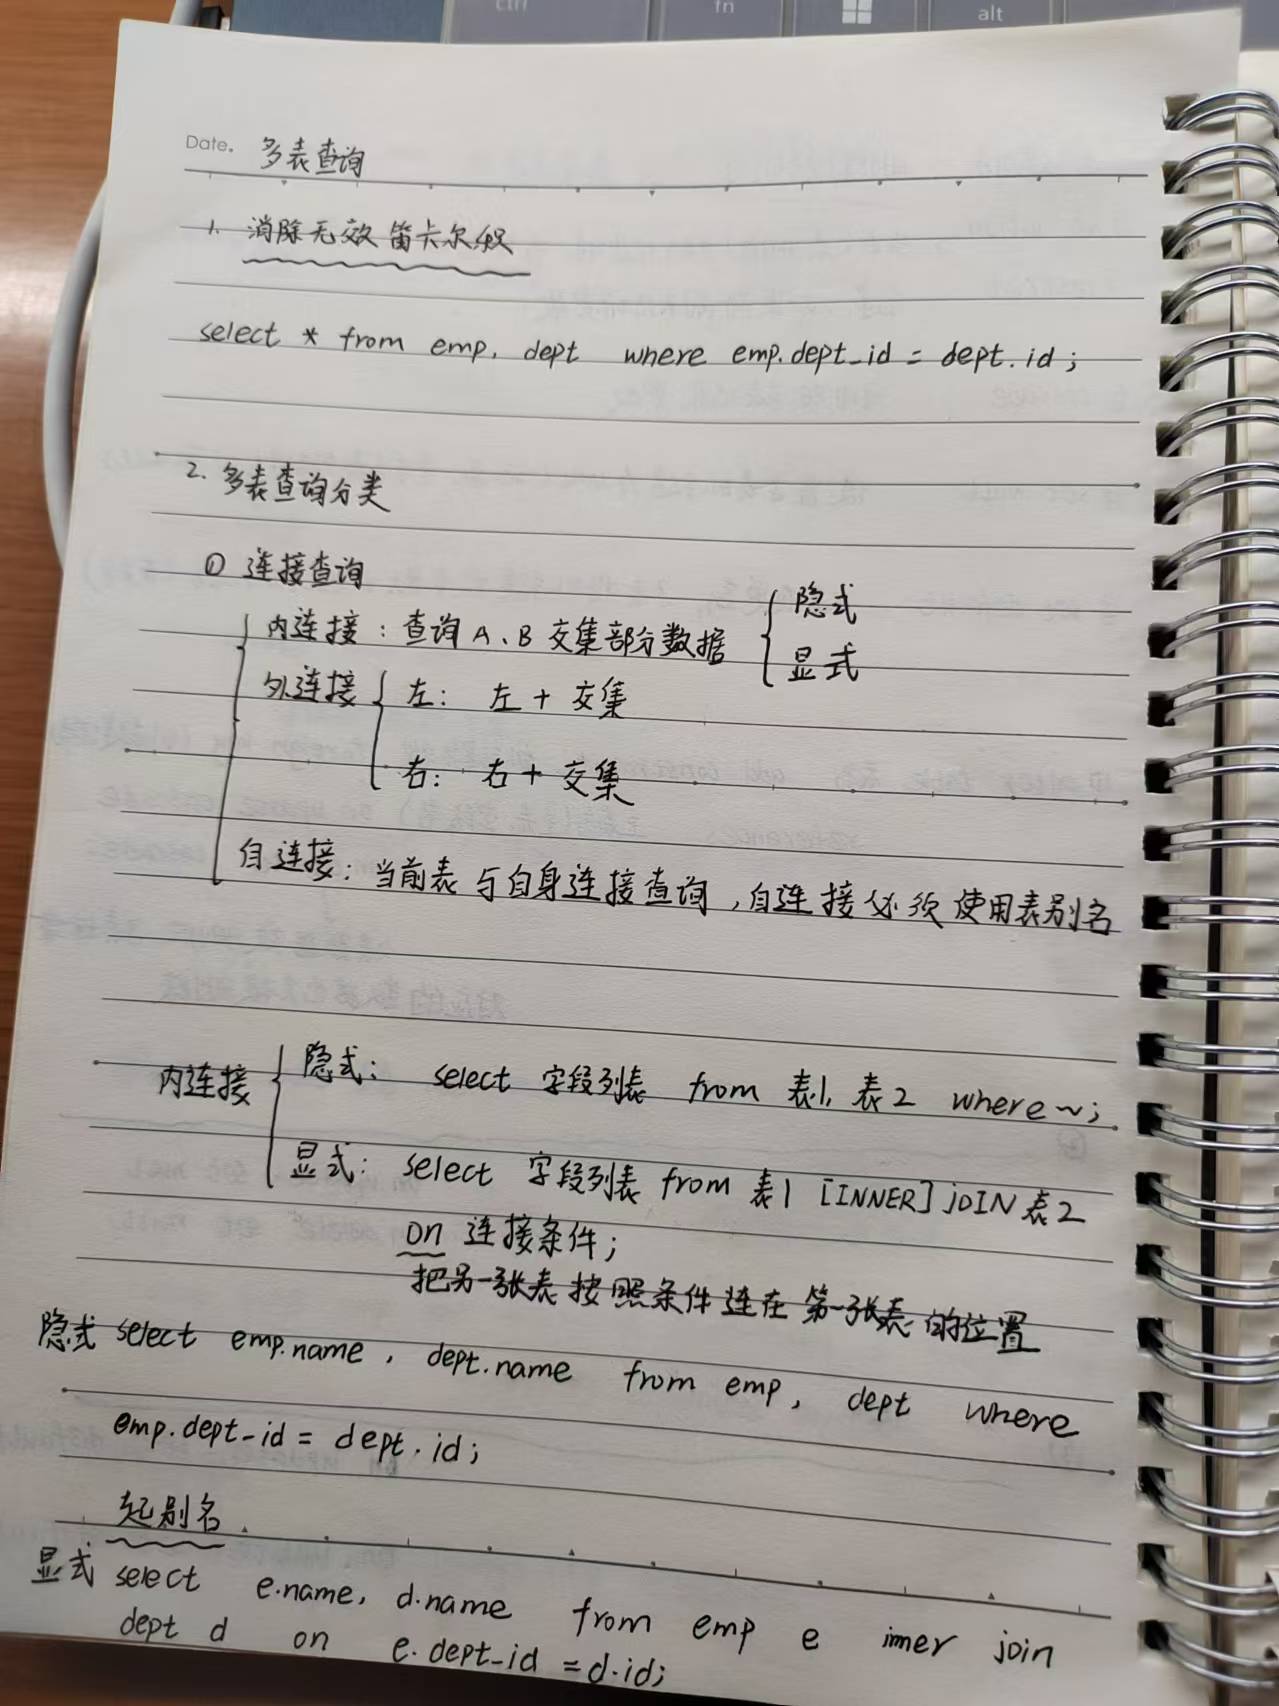 ctrl fn alt
Date. 多表查询
1. 消除无效笛卡尔积
select * from emp, dept where emp.dept_id = dept.id;
2. 多表查询分类
① 连接查询
内连接：查询 A、B 交集部分数据 { 隐式
显式
外连接 { 左： 左 + 交集
右： 右 + 交集
自连接：当前表与自身连接查询，自连接必须使用表别名
内连接 { 隐式： select 字段列表 from 表1, 表2 where ~;
显式： select 字段列表 from 表1 [INNER] jOIN 表2
on 连接条件;
把另一张表按照条件连在第一张表的位置
隐式 select emp.name, dept.name from emp, dept where
emp.dept_id = dept.id;
起别名
显式 select e.name, d.name from emp e inner join
dept d on e.dept_id = d.id;